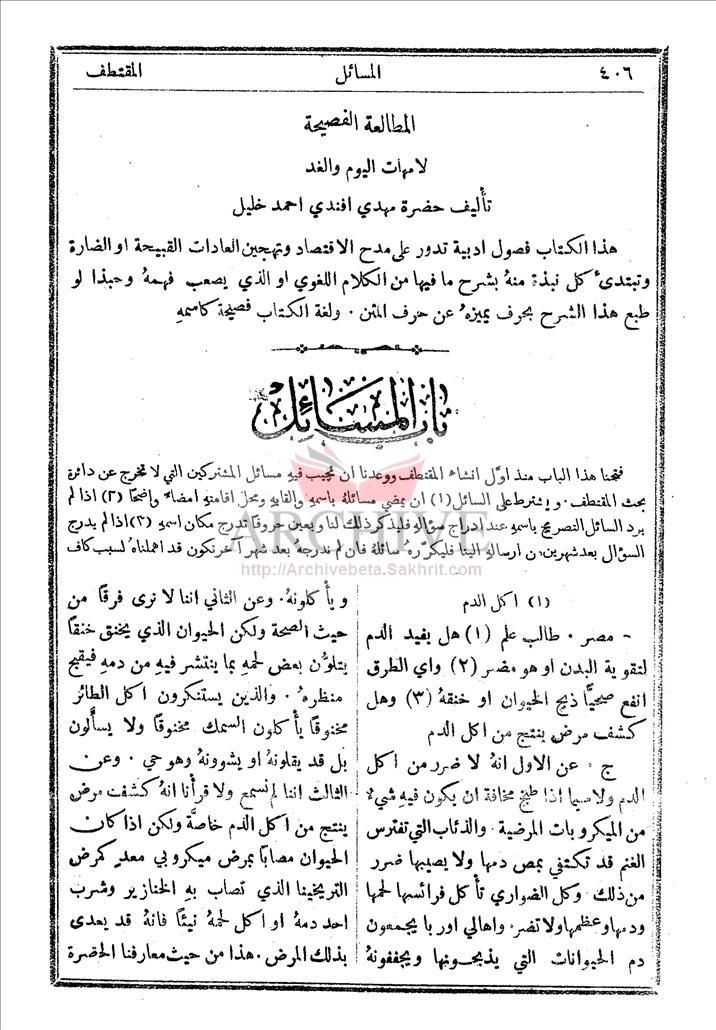 ٤٠٦ المسائل المقتطف
المطالعة الفصيحة
لامهات اليوم والغد
تأليف حضرة مهدي افندي احمد خليل
هذا الكتاب فصول ادبية تدور على مدح الاقتصاد وتهجين العادات القبيحة او الضارة
وتبتدىء كل نبذة منهُ بشرح ما فيها من الكلام اللغوي او الذي يصعب فهمهُ وحبذا لو
طبع هذا الشرح بحرف يميزهُ عن حرف المتن . ولغة الكتاب فصيحة كاسمهِ
باب المسائل
فتحنا هذا الباب منذ اوَّل انشاء المقتطف ووعدنا ان نجيب فيهِ مسائل المشتركين التي لا تخرج عن دائرة
بحث المقتطف . ويشترط على السائل (١) ان يمضي مسائلهُ باسمهِ والقابهِ ومحل اقامتهِ امضاءً واضحًا (٢) اذا لم
يرد السائل التصريح باسمهِ عند ادراج سؤالهِ فليذكر ذلك لنا ويعين حروفًا تدرج مكان اسمهِ (٣) اذا لم يدرج
السؤال بعد شهرين من ارسالهِ الينا فليكررهُ سائلهُ فان لم ندرجهُ بعد شهر آخر نكون قد اهملناهُ لسبب كاف
ARCHIVE
http://Archivebeta.Sakhrit.com
(١) اكل الدم
مصر . طالب علم (١) هل يفيد الدم
لتقوية البدن او هو مضر (٢) واي الطرق
انفع صحيًّا ذبح الحيوان او خنقهُ (٣) وهل
كشف مرض ينتج من اكل الدم
ج . عن الاول انهُ لا ضرر من اكل
الدم ولاسيما اذا طبخ مخافة ان يكون فيهِ شيءٌ
من الميكروبات المرضية . والذئاب التي تفترس
الغنم قد تكتفي بمص دمها ولا يصيبها ضرر
من ذلك . وكل الضواري تأكل فرائسها لحمها
ودمها وعظمها ولا تضر . واهالي اوربا يجمعون
دم الحيوانات التي يذبحونها ويجففونهُ
ويأكلونهُ . وعن الثاني اننا لا نرى فرقًا من
حيث الصحة ولكن الحيوان الذي يخنق خنقًا
يتلوَّن بعض لحمهِ بما ينتشر فيهِ من دمهِ فيقبح
منظرهُ . والذين يستنكرون اكل الطائر
مخنوقًا يأكلون السمك مخنوقًا ولا يسألون
بل قد يقلونهُ او يشوونهُ وهو حي . وعن
الثالث اننا لم نسمع ولا قرأنا انهُ كشف مرض
ينتج من اكل الدم خاصَّة ولكن اذا كان
الحيوان مصابًا بمرض ميكروبي معدٍ كمرض
التريخينا الذي تصاب بهِ الخنازير وشرب
احد دمهُ او اكل لحمهُ نيئًا فانهُ قد يعدى
بذلك المرض . هذا من حيث معارفنا الحاضرة